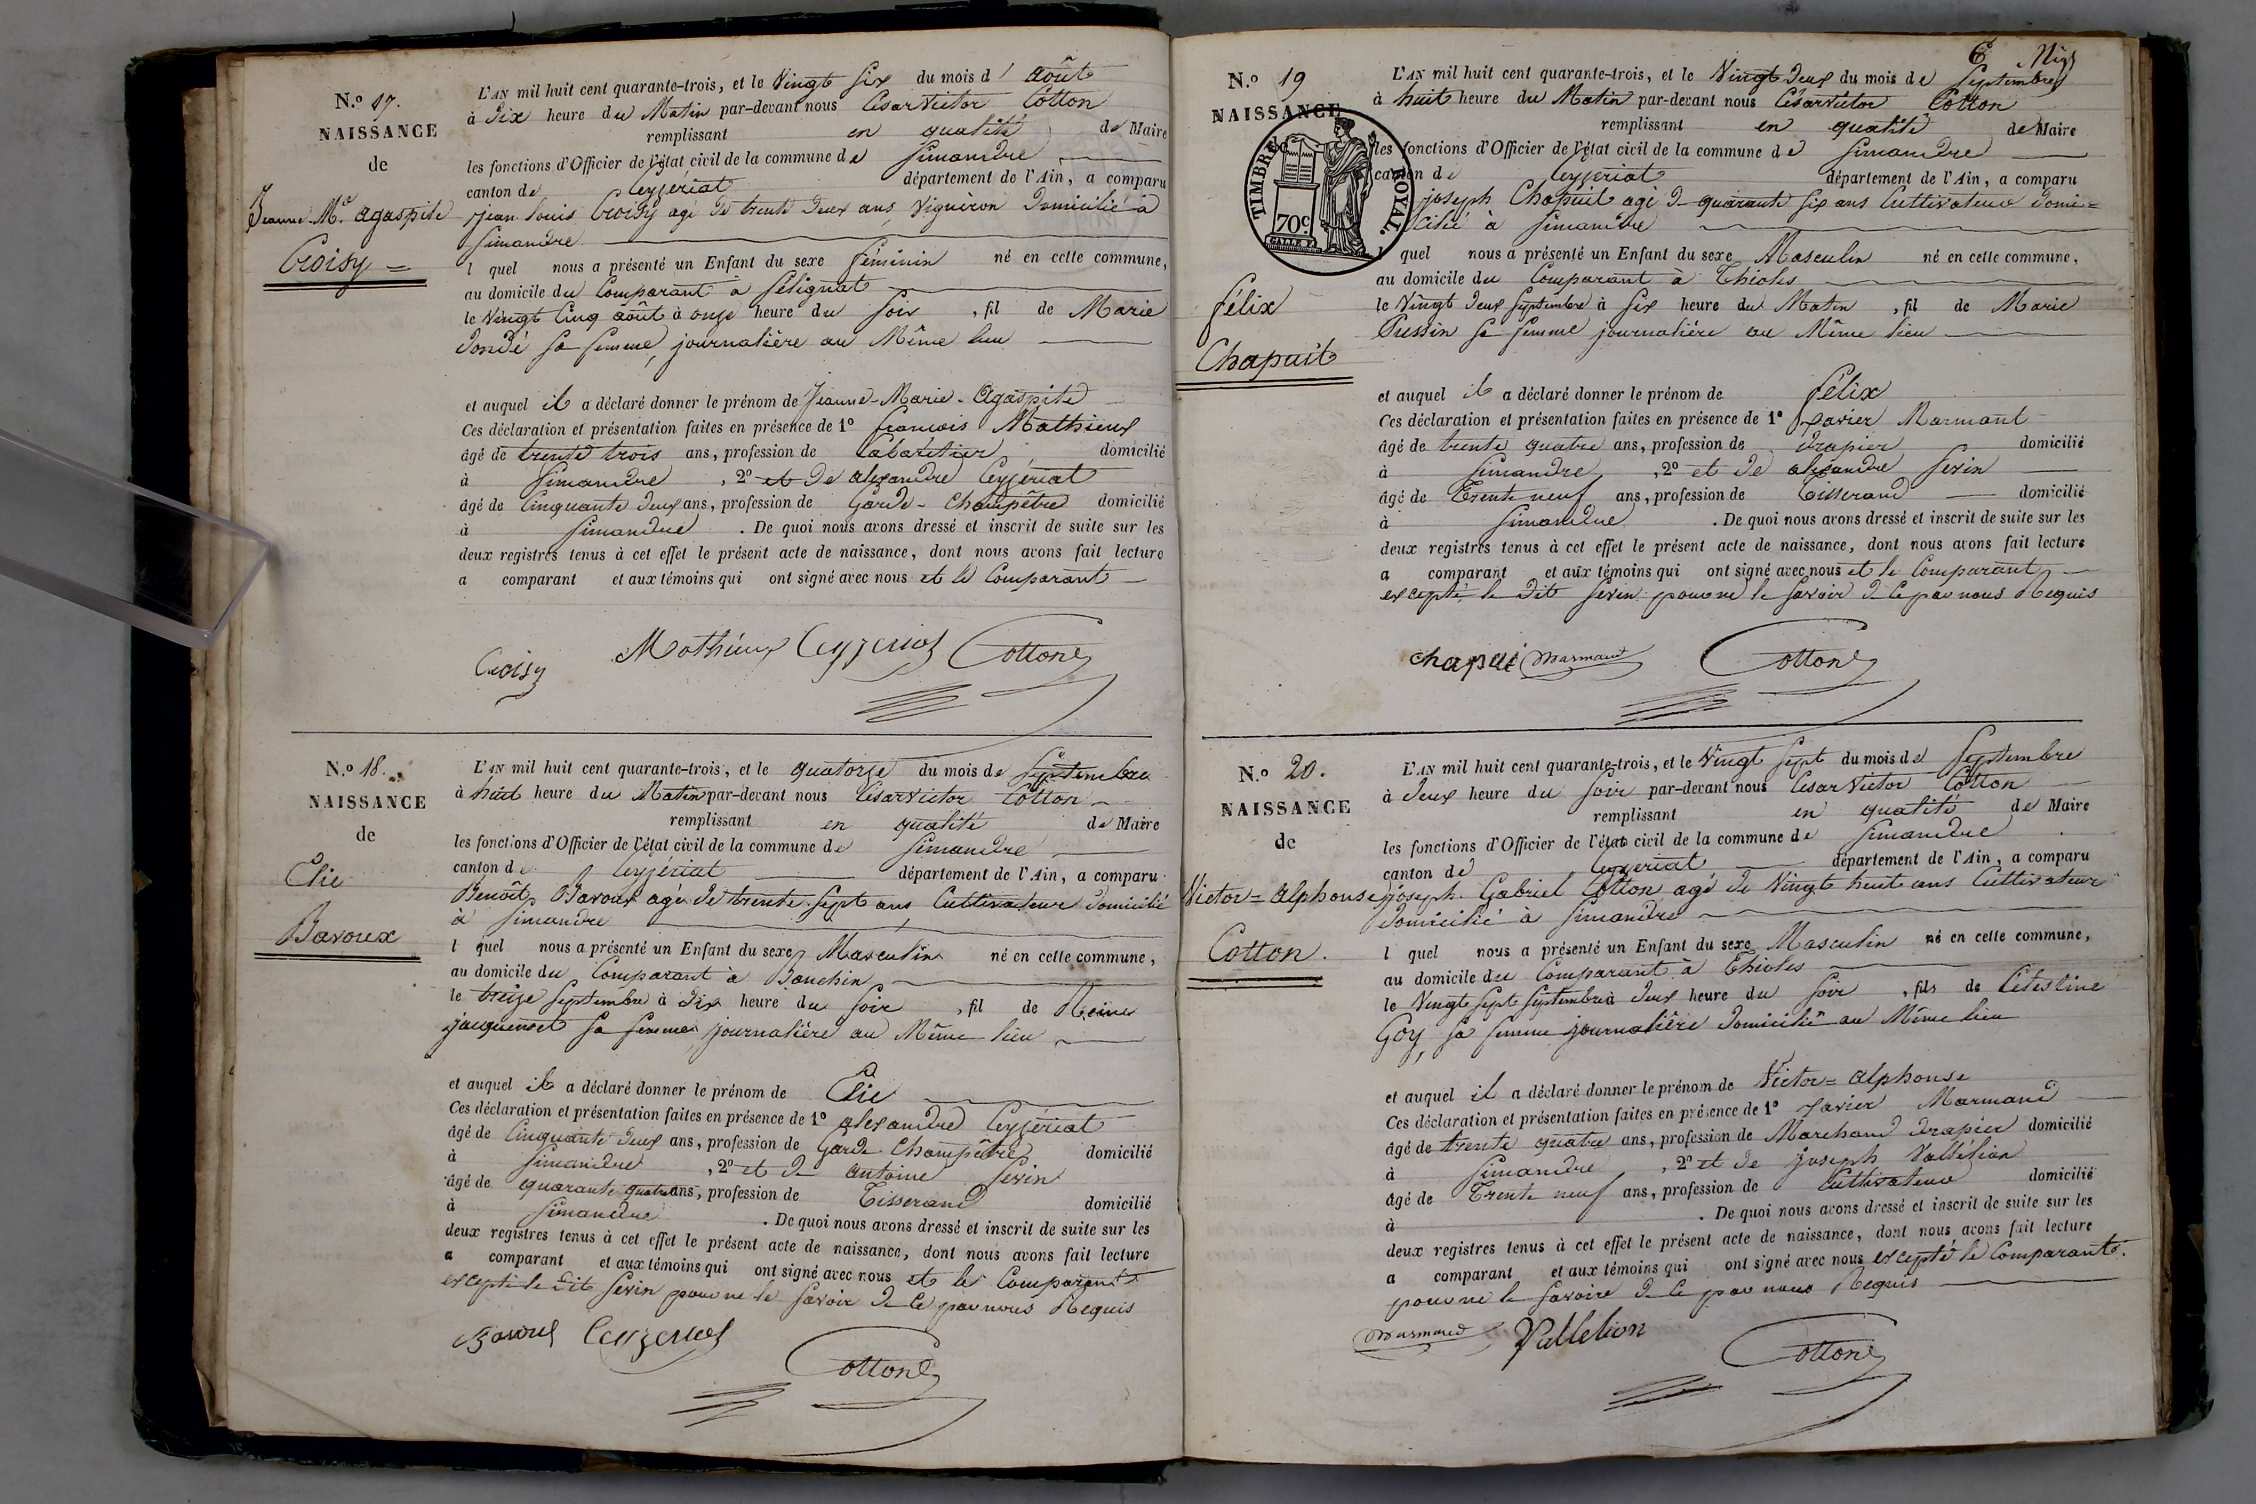 N.º 17.
NAISSANCE
de
Jeanne Mie agaspite
Croisy =
L'AN mil huit cent quarante-trois, et le Vingt six du mois d' août
à dix heure du Matin par-devant nous César Victor Cotton
remplissant en qualité de Maire
les fonctions d'Officier de l'état civil de la commune de Simandre
canton de Ceyzériat département de l'Ain, a comparu
jean Louis Croisy agé de trente deux ans, Vigneron Domicilié à
Simandre
l quel nous a présenté un Enfant du sexe féminin né en cette commune,
au domicile du Comparant à Sélignat
le Vingt Cinq août à onze heure du Soir , fil de Marie
Dondé sa femme, journalière au Même lieu
et auquel il a déclaré donner le prénom de Jeanne-Marie-Agaspite
Ces déclaration et présentation faites en présence de 1º françois Mathieux
âgé de trente trois ans, profession de Cabaretier domicilié
à Simandre , 2º et de alexandre Ceyzériat
âgé de Cinquante deux ans, profession de Garde-Champêtre domicilié
à Simandre . De quoi nous avons dressé et inscrit de suite sur les
deux registres tenus à cet effet le présent acte de naissance, dont nous avons fait lecture
a comparant et aux témoins qui ont signé avec nous et le Comparant
Croisy Mathieux Ceyzeriat Cotton
N.º 18.
NAISSANCE
de
Elie
Bavoux
L'AN mil huit cent quarante-trois, et le quatorze du mois de Septembre
à huit heure du Matin par-devant nous César Victor Cotton
remplissant en qualité de Maire
les fonctions d'Officier de l'état civil de la commune de Simandre
canton de Ceyzériat département de l'Ain, a comparu
Benoît Bavoux agé de trente sept ans Cultivateur Domicilié
à Simandre
l quel nous a présenté un Enfant du sexe Masculin né en cette commune,
au domicile du Comparant à Banchin
le treize Septembre à dix heure du Soir , fil de Reine
jacquemet sa femme, journalière au Même lieu
et auquel il a déclaré donner le prénom de Elie
Ces déclaration et présentation faites en présence de 1º alexandre Ceyzériat
âgé de Cinquante deux ans, profession de Garde Champêtre domicilié
à Simandre , 2º et de antoine Sevin
âgé de quarante quatre ans, profession de Tisserand domicilié
à Simandre . De quoi nous avons dressé et inscrit de suite sur les
deux registres tenus à cet effet le présent acte de naissance, dont nous avons fait lecture
a comparant et aux témoins qui ont signé avec nous et le Comparant
excepté le dit Sevin pour ne le Savoir de ce par nous Requis
Bavoux Ceyzeriat Cotton
N.º 19
NAISSANCE
de
TIMBRE ROYAL.
70c.
félix
Chapuit
L'AN mil huit cent quarante-trois, et le Vingt deux du mois de Septembre
à huit heure du Matin par-devant nous César Victor Cotton
remplissant en qualité de Maire
les fonctions d'Officier de l'état civil de la commune de Simandre
canton de Ceyzeriat département de l'Ain, a comparu
joseph Chapuit agé de quarante six ans Cultivateur Domi=
cilié à Simandre
l quel nous a présenté un Enfant du sexe Masculin né en cette commune,
au domicile du Comparant à Thioles
le Vingt deux Septembre à Six heure du Matin , fil de Marie
Pussin sa femme journalière au Même lieu
et auquel il a déclaré donner le prénom de félix
Ces déclaration et présentation faites en présence de 1º xavier Marmant
âgé de trente quatre ans, profession de drapier domicilié
à Simandre , 2º et de alexandre Sevin
âgé de Trente neuf ans, profession de Tisserand domicilié
à Simandre . De quoi nous avons dressé et inscrit de suite sur les
deux registres tenus à cet effet le présent acte de naissance, dont nous avons fait lecture
a comparant et aux témoins qui ont signé avec nous et le Comparant
excepté le dit Sevin pour ne le Savoir de ce par nous Requis
chapui Marmand Cotton
N.º 20.
NAISSANCE
de
Victor=Alphonse
Cotton.
L'AN mil huit cent quarante-trois, et le Vingt Sept du mois de Septembre
à deux heure du Soir par-devant nous César Victor Cotton
remplissant en qualité de Maire
les fonctions d'Officier de l'état civil de la commune de Simandre
canton de Ceyzeriat département de l'Ain, a comparu
joseph Gabriel Cotton agé de Vingt huit ans Cultivateur
Domicilié à Simandre
l quel nous a présenté un Enfant du sexe Masculin né en cette commune,
au domicile du Comparant à Thioles
le Vingt Sept Septembre à deux heure du Soir , fils de Célestine
Goy, sa femme journalière domicilié au Même lieu
et auquel il a déclaré donner le prénom de Victor=alphonse
Ces déclaration et présentation faites en présence de 1º xavier Marmand
âgé de trente quatre ans, profession de Marchand drapier domicilié
à Simandre , 2º et de joseph Vallélion
âgé de Trente neuf ans, profession de Cultivateur domicilié
à . De quoi nous avons dressé et inscrit de suite sur les
deux registres tenus à cet effet le présent acte de naissance, dont nous avons fait lecture
a comparant et aux témoins qui ont signé avec nous excepté le Comparant.
pour ne le Savoire de ce par nous Requis
Marmand Vallelion Cotton